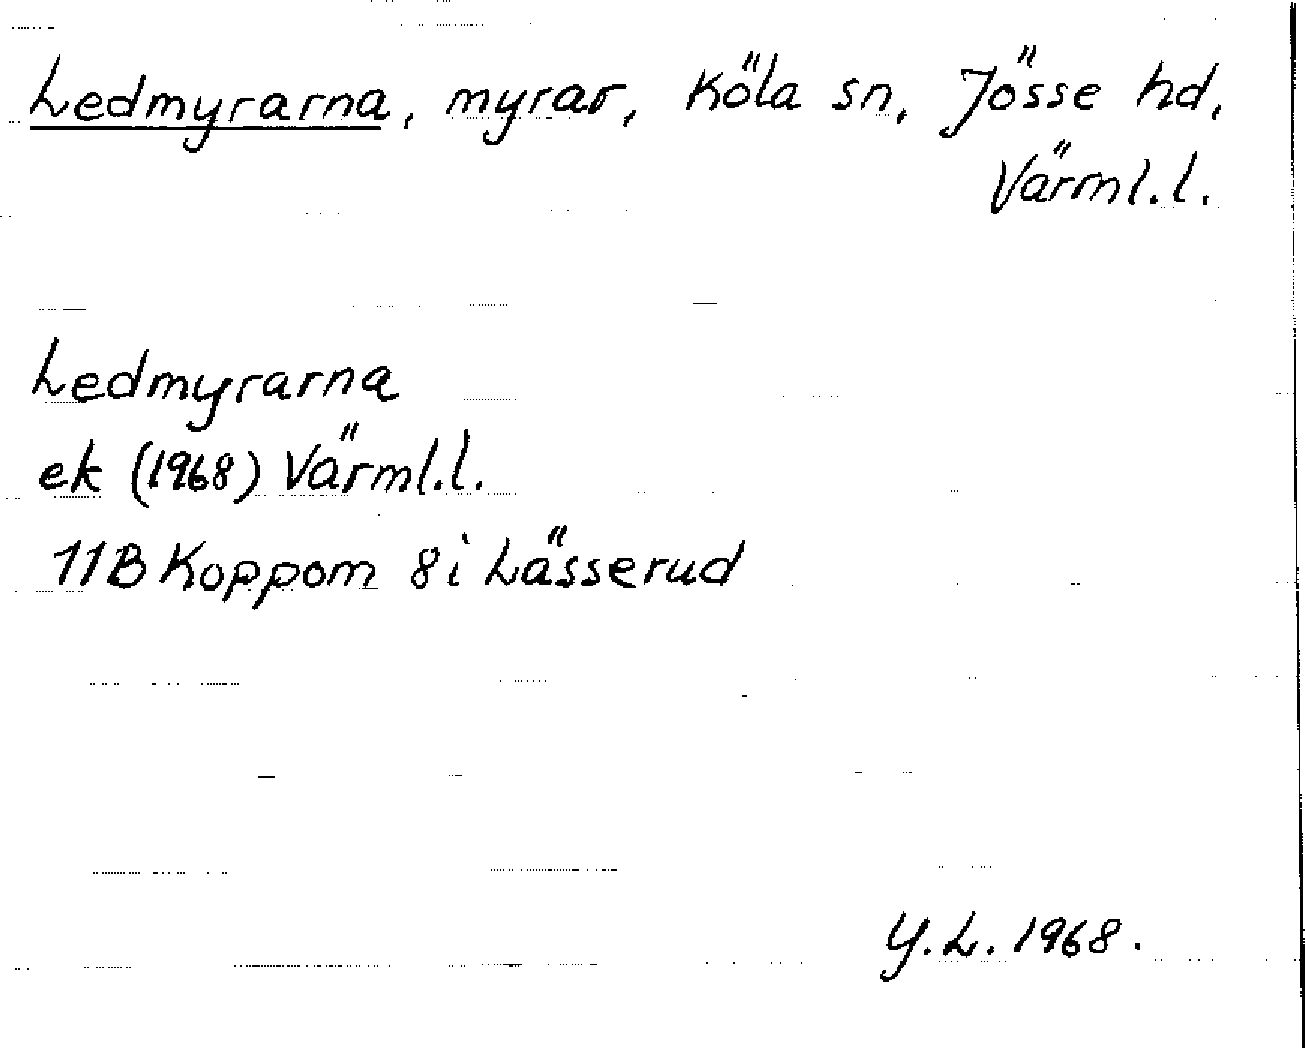 Ledmyrarna, myrar, Köla sn, Jösse hd,
Värml.l.
Ledmyrarna
ek (1968) Värml.l.
11B Koppom 8i Lässerud
Y.L. 1968.